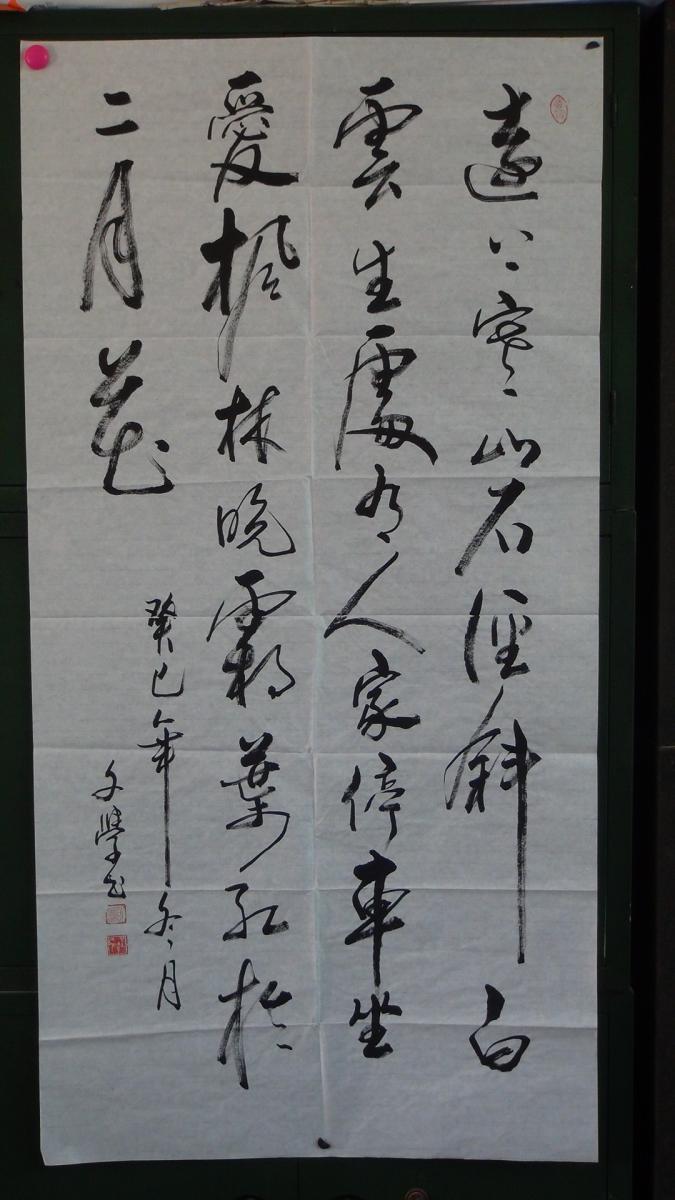 遠上寒山石徑斜白
雲生處有人家停車坐
愛楓林晚霜葉紅於
二月花
癸巳年冬月
文學書